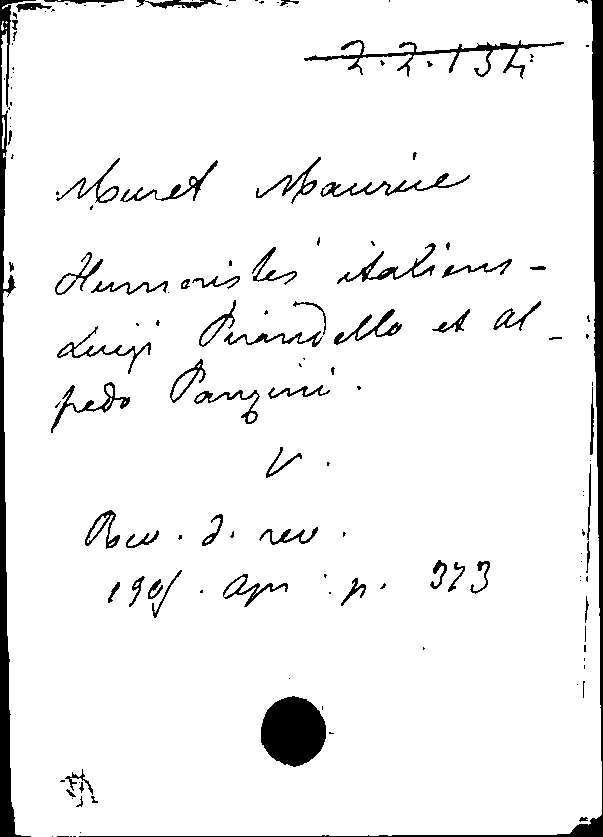 2.2.134
Muret Maurice
Humoristes italiens -
Luigi Pirandello et Al -
fredo Panzini.
V.
Rev. d. rev.
1905. apr. p. 373